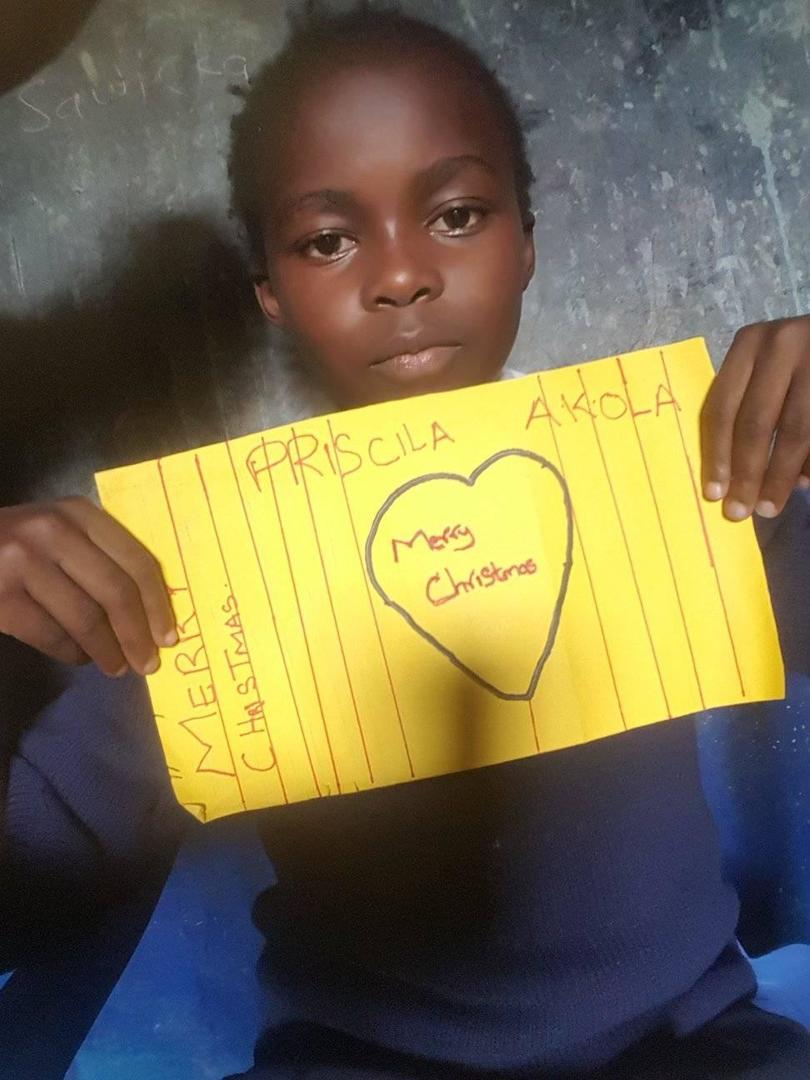 PRISCILA AKOLA
Merry
Christmas
MERRY
CHRISTMAS.